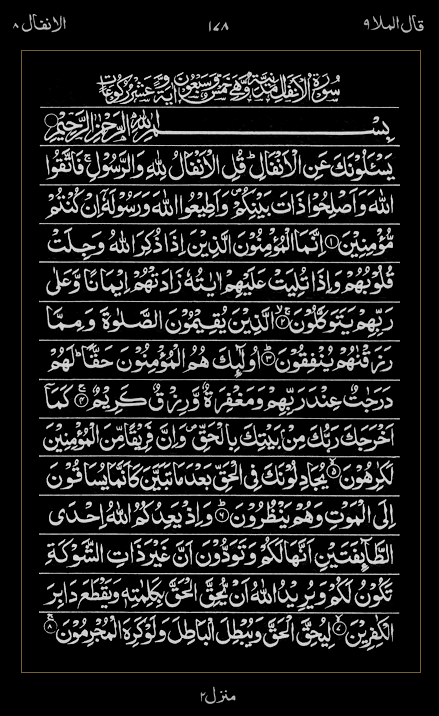 قال الملا ٩
١٧٨
الانفال ٨
سُوْرَةُ الْاَنْفَالِ مَدَنِيَّةٌ وَّهِيَ خَمْسٌ وَّسَبْعُوْنَ اٰيَةً وَّعَشْرُ رُكُوْعَاتٍ
بِسْمِ اللّٰهِ الرَّحْمٰنِ الرَّحِيْمِ
يَسْـَٔلُوْنَكَ عَنِ الْاَنْفَالِ ؕ قُلِ الْاَنْفَالُ لِلّٰهِ وَالرَّسُوْلِ ۚ فَاتَّقُوا
اللّٰهَ وَاَصْلِحُوْا ذَاتَ بَيْنِكُمْ ۪ وَاَطِيْعُوا اللّٰهَ وَرَسُوْلَهٗۤ اِنْ كُنْتُمْ
مُّؤْمِنِيْنَ ۱ اِنَّمَا الْمُؤْمِنُوْنَ الَّذِيْنَ اِذَا ذُكِرَ اللّٰهُ وَجِلَتْ
قُلُوْبُهُمْ وَاِذَا تُلِيَتْ عَلَيْهِمْ اٰيٰتُهٗ زَادَتْهُمْ اِيْمَانًا وَّعَلٰى
رَبِّهِمْ يَتَوَكَّلُوْنَ ۚۖ ۲ الَّذِيْنَ يُقِيْمُوْنَ الصَّلٰوةَ وَمِمَّا
رَزَقْنٰهُمْ يُنْفِقُوْنَ ؕ ۳ اُولٰٓئِكَ هُمُ الْمُؤْمِنُوْنَ حَقًّا ؕ لَهُمْ
دَرَجٰتٌ عِنْدَ رَبِّهِمْ وَمَغْفِرَةٌ وَّرِزْقٌ كَرِيْمٌ ۚ ۴ كَمَاۤ
اَخْرَجَكَ رَبُّكَ مِنْۢ بَيْتِكَ بِالْحَقِّ ۪ وَاِنَّ فَرِيْقًا مِّنَ الْمُؤْمِنِيْنَ
لَكٰرِهُوْنَ ۙ ۵ يُجَادِلُوْنَكَ فِى الْحَقِّ بَعْدَ مَا تَبَيَّنَ كَاَنَّمَا يُسَاقُوْنَ
اِلَى الْمَوْتِ وَهُمْ يَنْظُرُوْنَ ؕ ۶ وَاِذْ يَعِدُكُمُ اللّٰهُ اِحْدَى
الطَّآئِفَتَيْنِ اَنَّهَا لَكُمْ وَتَوَدُّوْنَ اَنَّ غَيْرَ ذَاتِ الشَّوْكَةِ
تَكُوْنُ لَكُمْ وَيُرِيْدُ اللّٰهُ اَنْ يُّحِقَّ الْحَقَّ بِكَلِمٰتِهٖ وَيَقْطَعَ دَابِرَ
الْكٰفِرِيْنَ ۙ ۷ لِيُحِقَّ الْحَقَّ وَيُبْطِلَ الْبَاطِلَ وَلَوْ كَرِهَ الْمُجْرِمُوْنَ ۚ ۸
منزل ۲